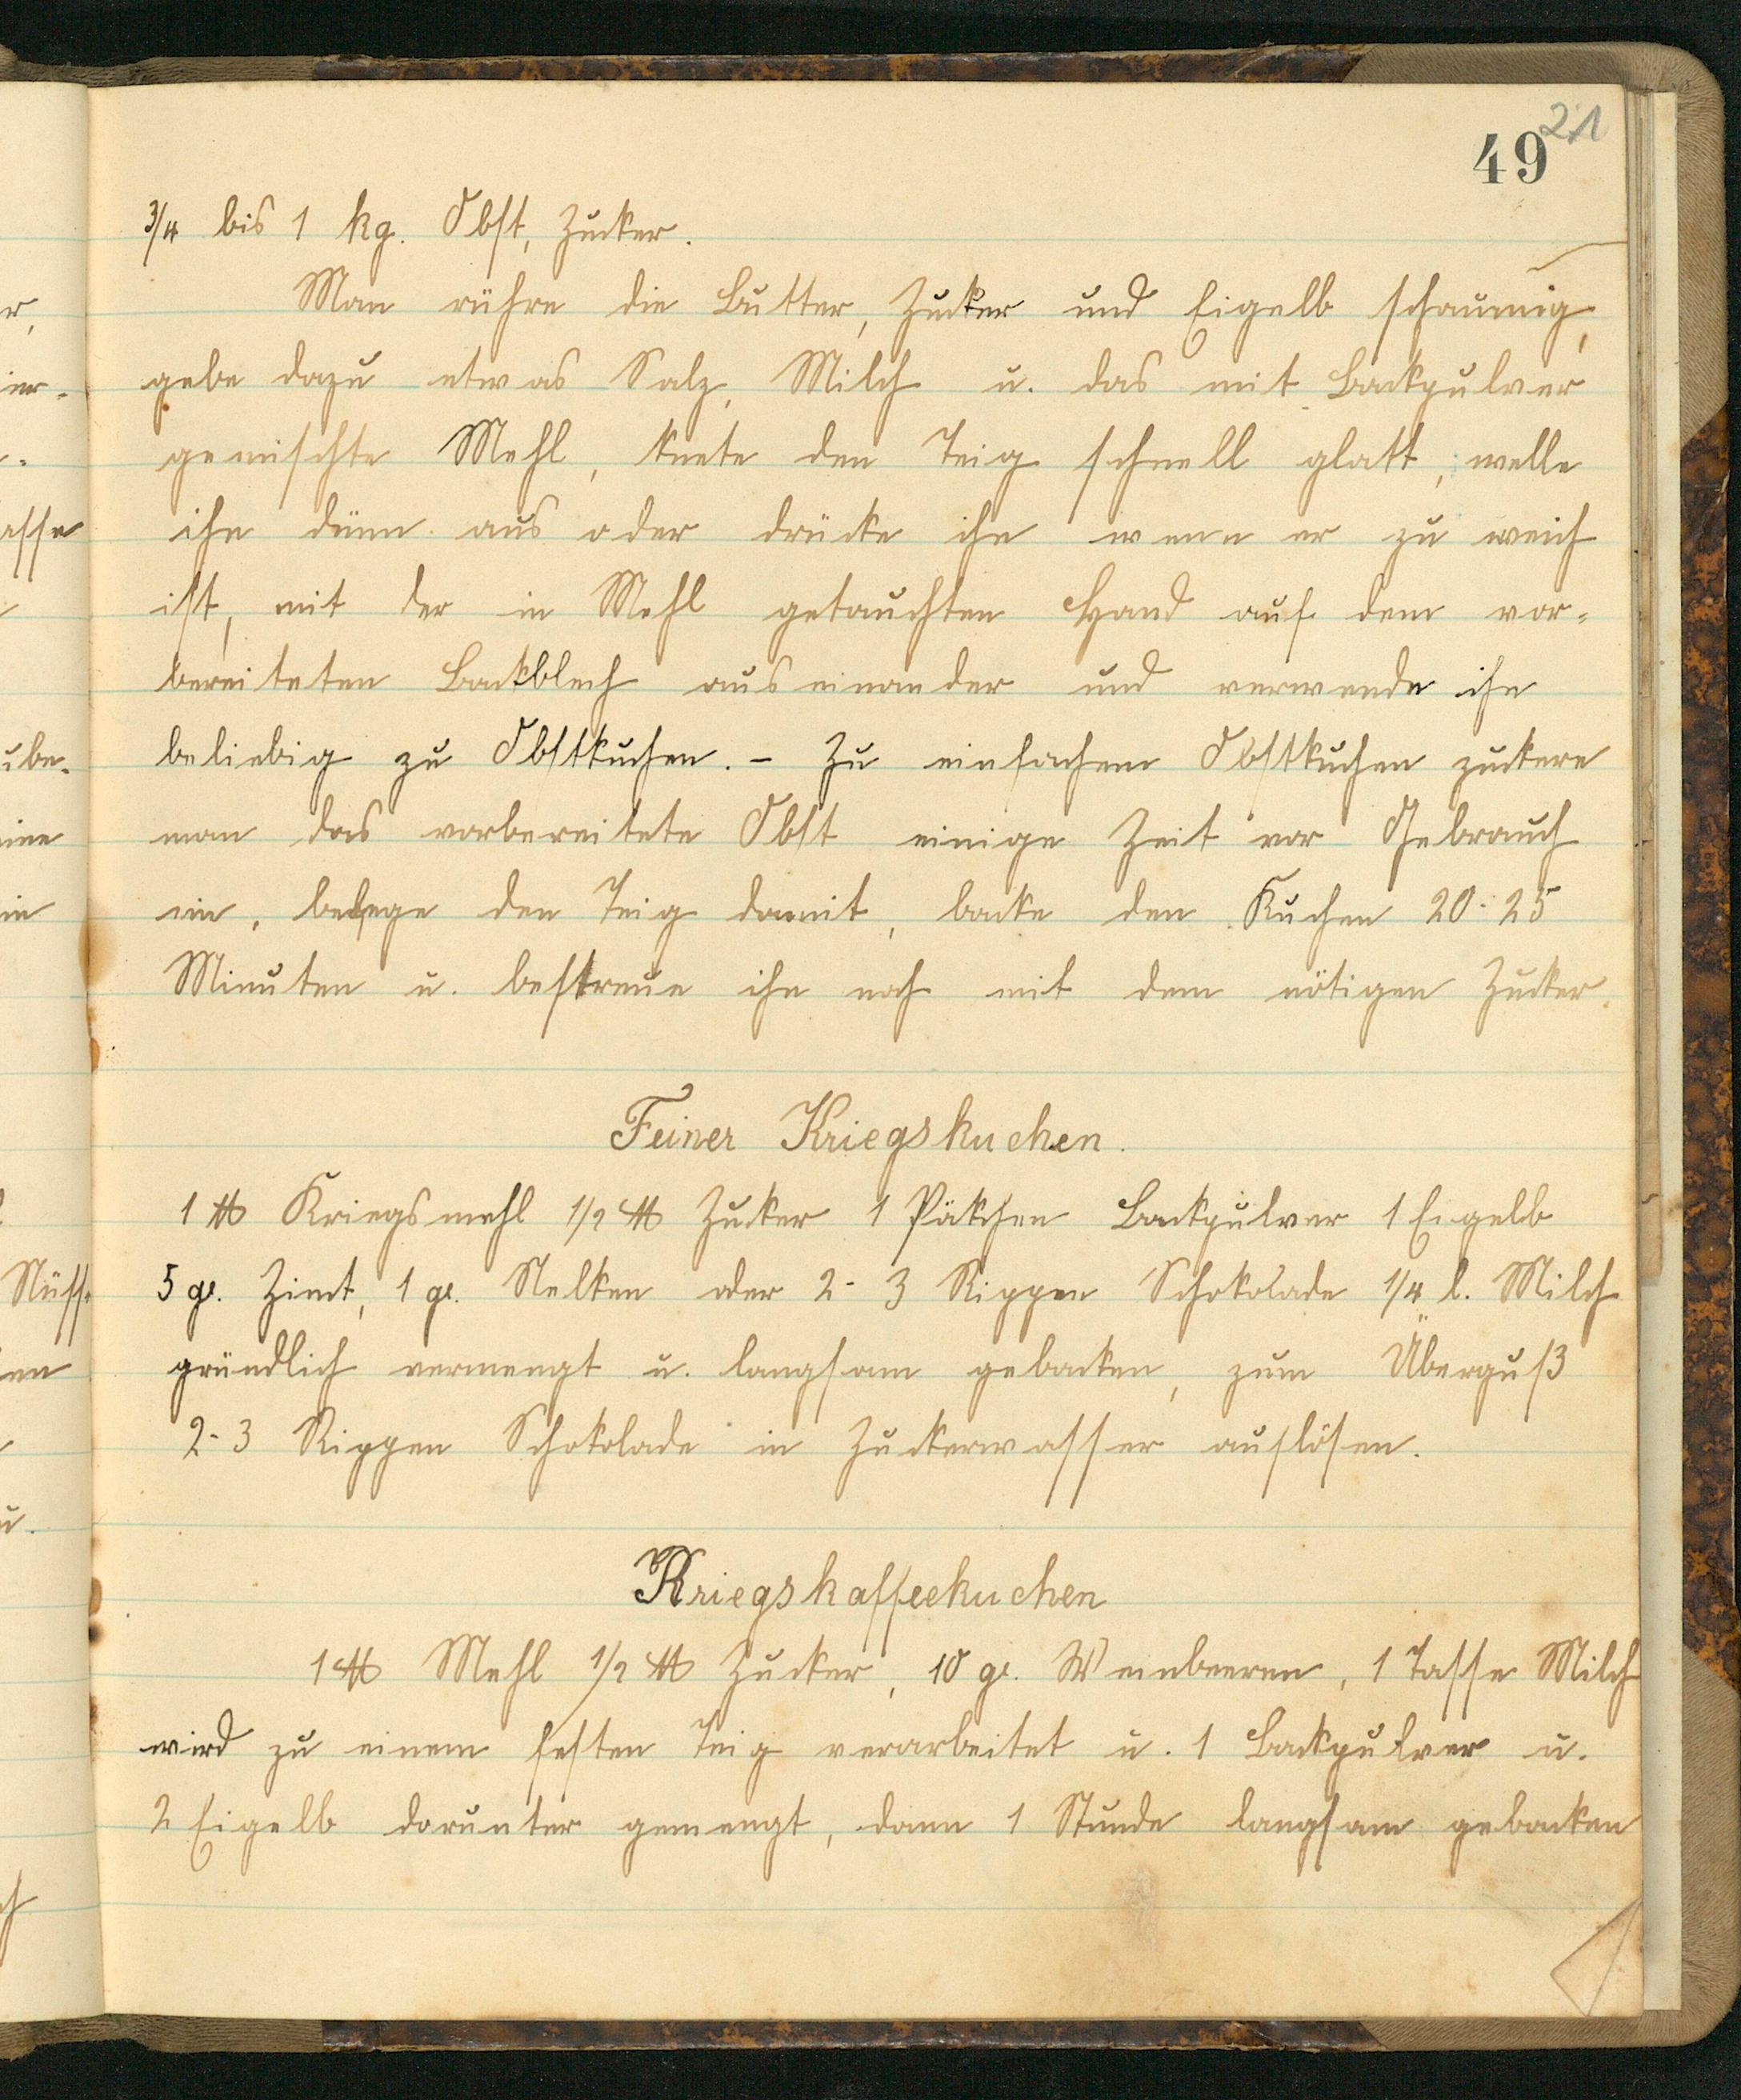 21
49
3/4 bis 1 kg. Obst, Zucker.
Man rühre die Butter, Zucker und Eigelb schaumig,
gebe dazu etwas Salz, Milch u. das mit Backpulver
gemischte Mehl, knete den Teig schnell glatt, welle
ihn dünn aus oder drücke ihn wenn er zu weich
ist, mit der in Mehl getauchten Hand auf dem vor-
bereiteten Backblech auseinander und verwende ihn
beliebig zu Obstkuchen. - Zu einfachem Obstkuchen zuckere
man das vorbereitete Obst einige Zeit vor Gebrauch
ein, belege den Teig damit, backe den Kuchen 20-25
Minuten u. bestreue ihn noch mit dem nötigen Zucker.
Feiner Kriegskuchen.
1 ℔ Kriegsmehl 1/2 ℔ Zucker 1 Päckchen Backpulver 1 Eigelb
5 gr. Zimt, 1 gr. Nelken oder 2-3 Rippen Schokolade 1/4 l. Milch
gründlich vermengt u. langsam gebacken, zum Überguß
2-3 Rippen Schokolade in Zuckerwasser auflösen.
Kriegskaffeekuchen
1 ℔ Mehl 1/2 ℔ Zucker, 10 gr. Weinbeeren, 1 Tasse Milch
wird zu einem festen Teig verarbeitet u. 1 Backpulver u.
2 Eigelb darunter gemengt, dann 1 Stunde langsam gebacken